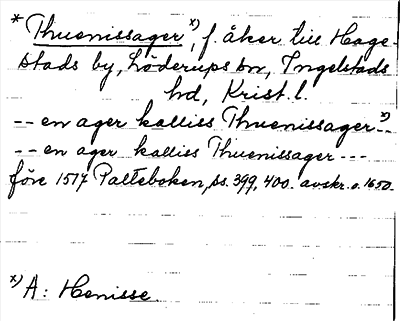 * Thuenissager x), f. åker till Hage-
stads by, Löderups sn, Ingelstads
hd, Krist. l.
-- en ager kalliss Thuenissager x) --
-- en ager kalliss Thuenissager ---
före 1517 Palteboken, ss. 399, 400. avskr. o. 1650.
x) A: Henisse